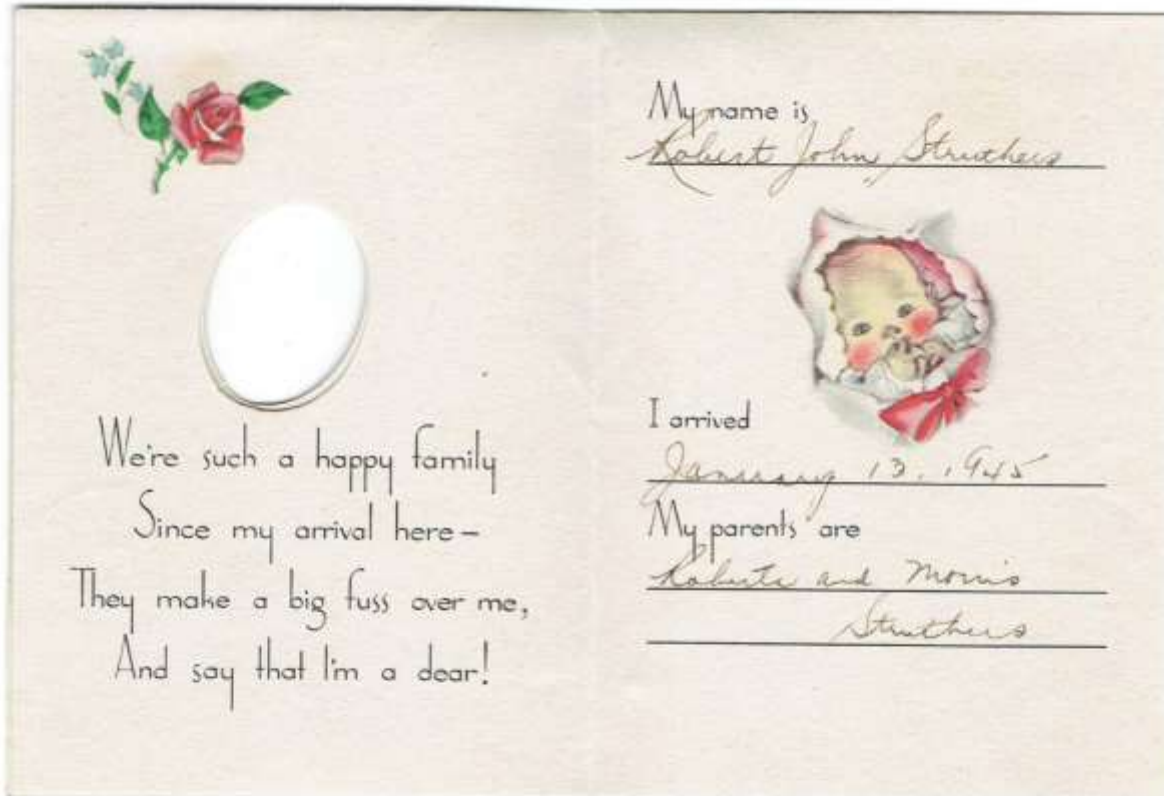 We're such a happy family
Since my arrival here—
They make a big fuss over me,
And say that I'm a dear!
My name is
Robert John Struthers
I arrived
January 13, 1945
My parents are
Roberta and Morris
Struthers